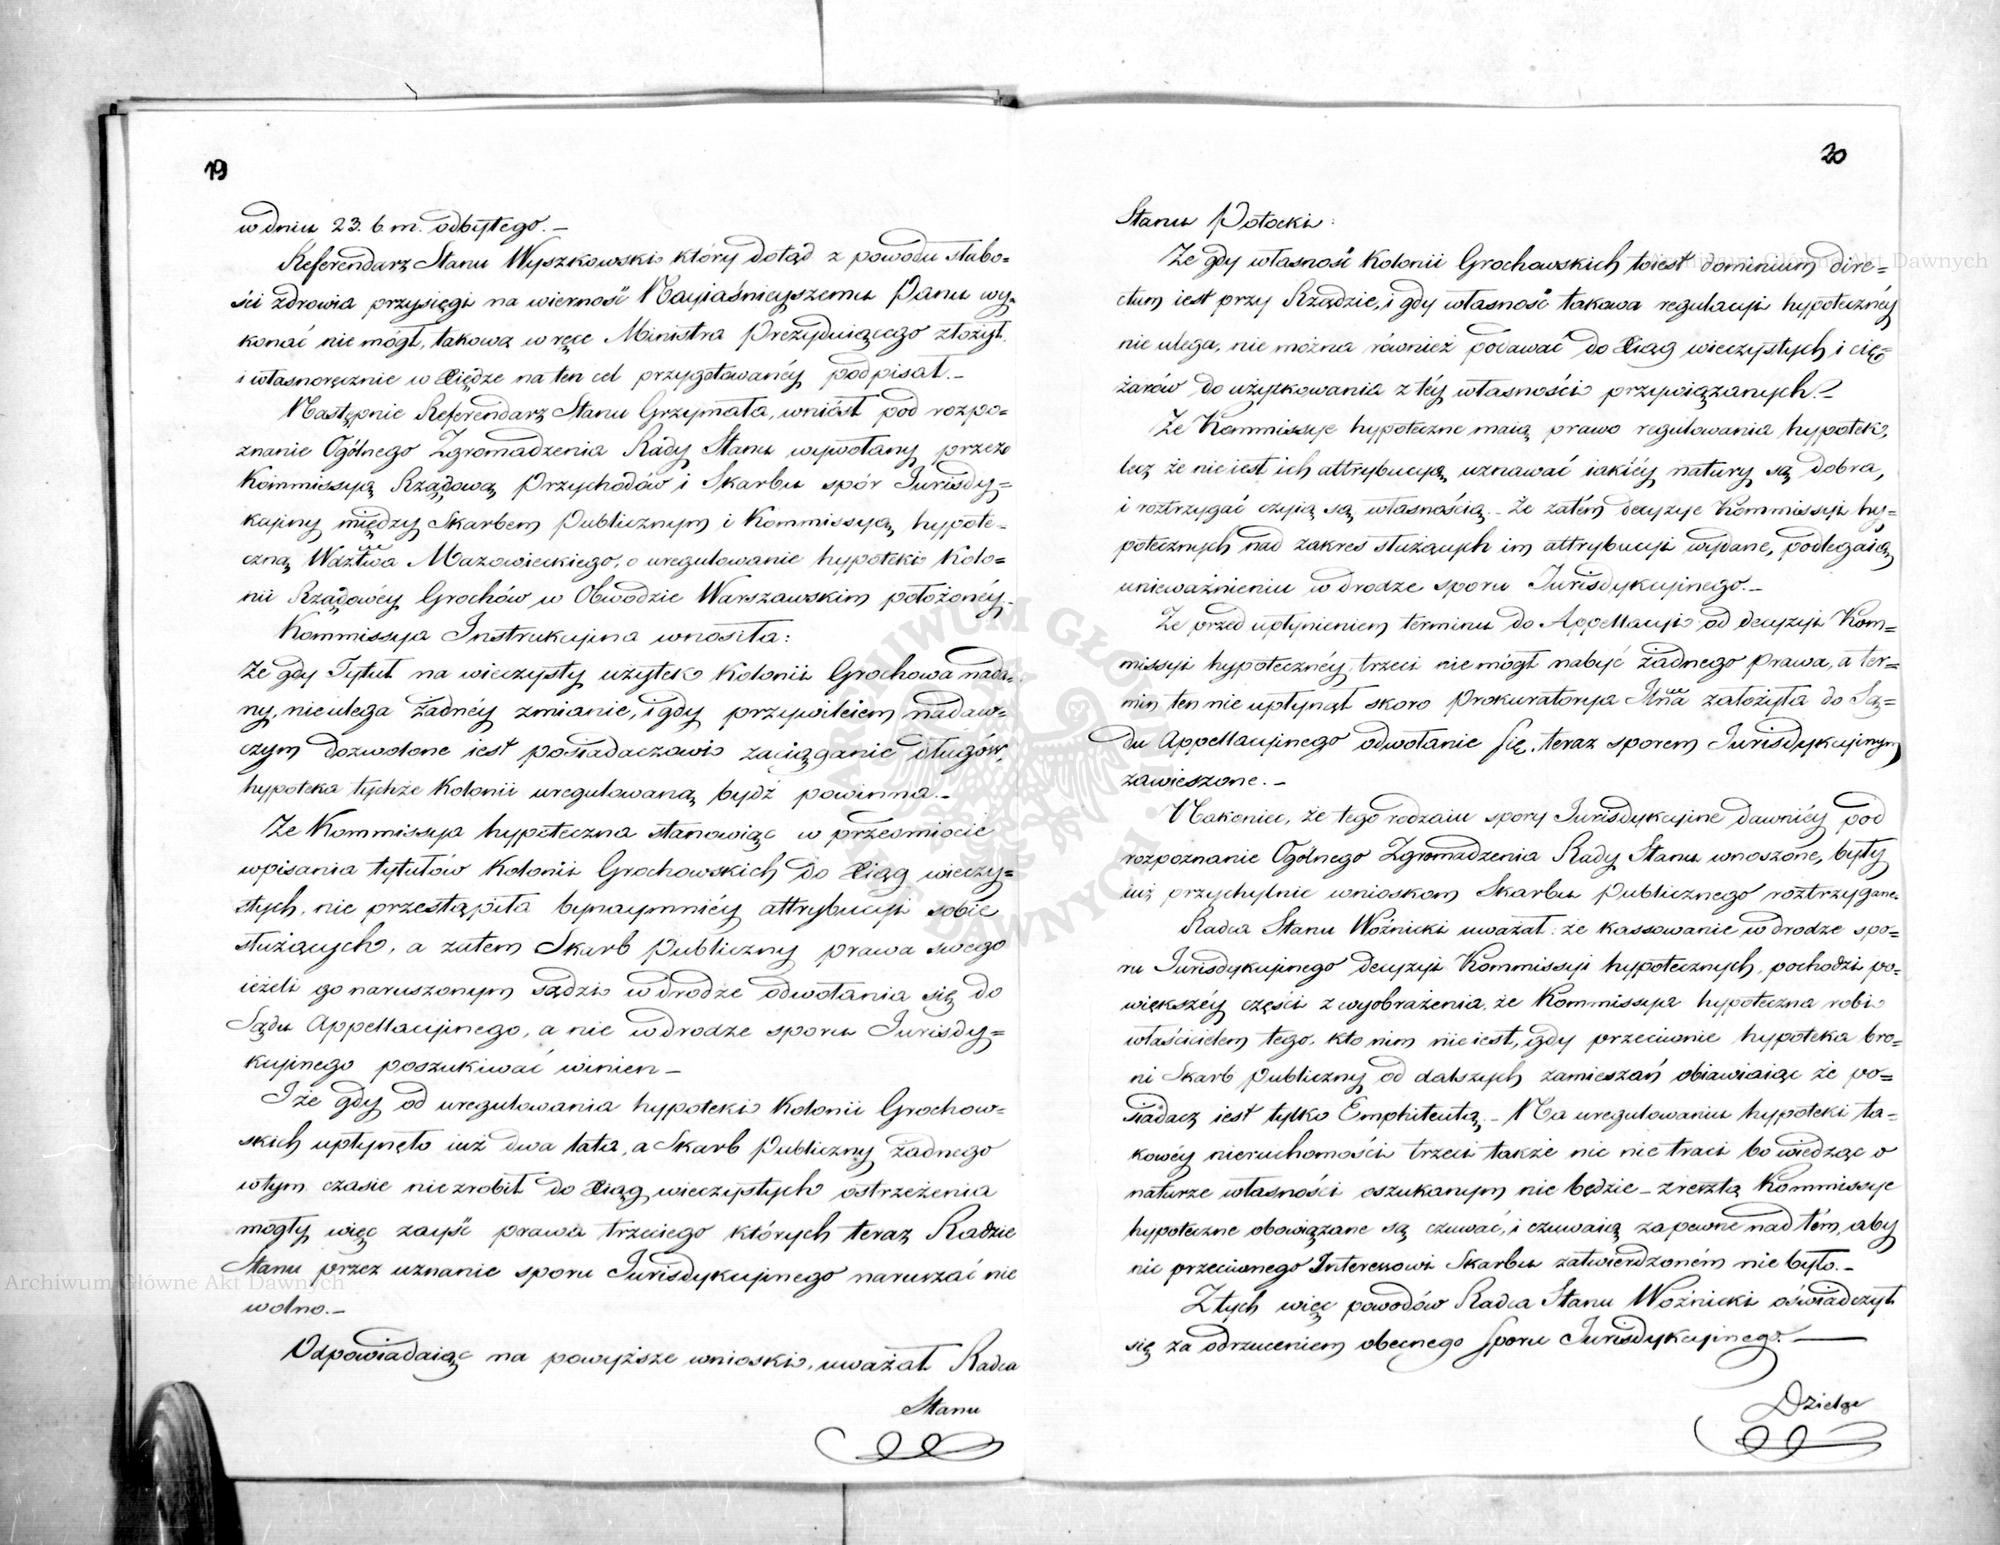 19
w dniu 23. b. m. odbytego. –
Referendarz Stanu Wyszkowski który dotąd z powodu słabo=
ści zdrowia przysięgi na wierność Nayiaśnieyszemu Panu wy=
konać nie mógł, takową w ręce Ministra Prezyduiącego złożył
i własnoręcznie w Xiędze na ten cel przygotowanéy podpisał. –
Następnie Referendarz Stanu Grzymała, wniósł pod rozpo=
znanie Ogólnego Zgromadzenia Rady Stanu wywołany przez
Kommissyą Rządową Przychodów i Skarbu spór Jurisdy=
kcyiny między Skarbem Publicznym i Kommissyą hypote=
czną Wdztwa Mazowieckiego, o uregulowanie hypoteki Kolo=
nii Rządowéy Grochów w Obwodzie Warszawskim położonéy. –
Kommissya Instrukcyina wnosiła:
Że gdy Tytuł na wieczysty użytek Kolonii Grochowa nada=
ny, nie ulega żadnéy zmianie, i gdy przywileiem nadaw=
czym dozwolone iest posiadaczowi zaciąganie długów,
hypoteka tychże Kolonii uregulowaną bydź powinna. –
Że Kommissya hypoteczna stanowiąc w przedmiocie
wpisania tytułów Kolonii Grochowskich do Xiąg wieczy=
stych, nie przestąpiła bynaymniéy attrybucyi sobie
służących, a zatem Skarb Publiczny prawa swego
ieżeli go naruszonym sądzi w drodze odwołania się do
Sądu Appellacyinego, a nie w drodze sporu Jurisdy=
kcyinego poszukiwać winien –
I że gdy od uregulowania hypoteki Kolonii Grochow=
skich upłynęło iuż dwa lata, a Skarb Publiczny żadnego
w tym czasie nie zrobił do Xiąg wieczystych ostrzeżenia
mogły więc zayść prawa trzeciego których teraz Radzie
Stanu przez uznanie sporu Jurisdykcyinego naruszać nie
wolno. –
Odpowiadaiąc na powyższe wnioski, uważał Radca
Stanu
20
Stanu Potocki:
Że gdy własność Kolonii Grochowskich toiest dominium dire=
ctum iest przy Rządzie, i gdy własność takowa regulacyi hypotecznéy
nie ulega, nie można również podawać do Xiąg wieczystych i cię=
żarów do użytkowania z téy własności przywiązanych. –
Że Kommissye hypoteczne maią prawo regulowania hypotek,
lecz że nie iest ich attrybucyą, uznawać iakiéy natury są dobra,
i roztrzygać czyią są własnością. – Że zatém decyzye Kommissyi hy=
potecznych nad zakres służących im attrybucyi wydane, podlegaią
unieważnieniu w drodze sporu Jurisdykcyinego. –
Że przed upłynieniem terminu do Appellacyi od decyzyi Kom=
missyi hypotecznéy, trzeci nie mógł nabyć żadnego prawa, a ter=
min ten nie upłynął skoro Prokuratorya Jlna założyła do Są=
du Appellacyinego odwołanie się, teraz sporem Jurisdykcyinym
zawieszone. –
Nakoniec, że tego rodzaiu spory Jurisdykcyine dawniéy pod
rozpoznanie Ogólnego Zgromadzenia Rady Stanu wnoszone, były
iuż przychylnie wnioskom Skarbu Publicznego roztrzygane.
Radca Stanu Woźnicki uważał: że kassowanie w drodze spo=
ru Jurisdykcyinego decyzyi Kommissyi hypotecznych, pochodzi po=
większéy części z wyobrażenia, że Kommissya hypoteczna robi
właścicielem tego, kto nim nie iest, gdy przeciwnie hypoteka bro=
ni Skarb Publiczny od dalszych zamieszań obiawiaiąc że po=
siadacz iest tylko Emphiteutą. – Na uregulowaniu hypoteki ta=
kowéy nieruchomości trzeci także nic nie traci bo wiedząc o
naturze własności oszukanym nie będzie – zresztą Kommissye
hypoteczne obowiązane są czuwać, i czuwaią zapewne nad tém, aby
nic przeciwnego Interessowi Skarbu zatwierdzoném nie było. –
Z tych więc powodów Radca Stanu Woźnicki oświadczył
się za odrzuceniem obecnego Sporu Jurisdykcyinego. –
Dzielge
Archiwum Główne Akt Dawnych